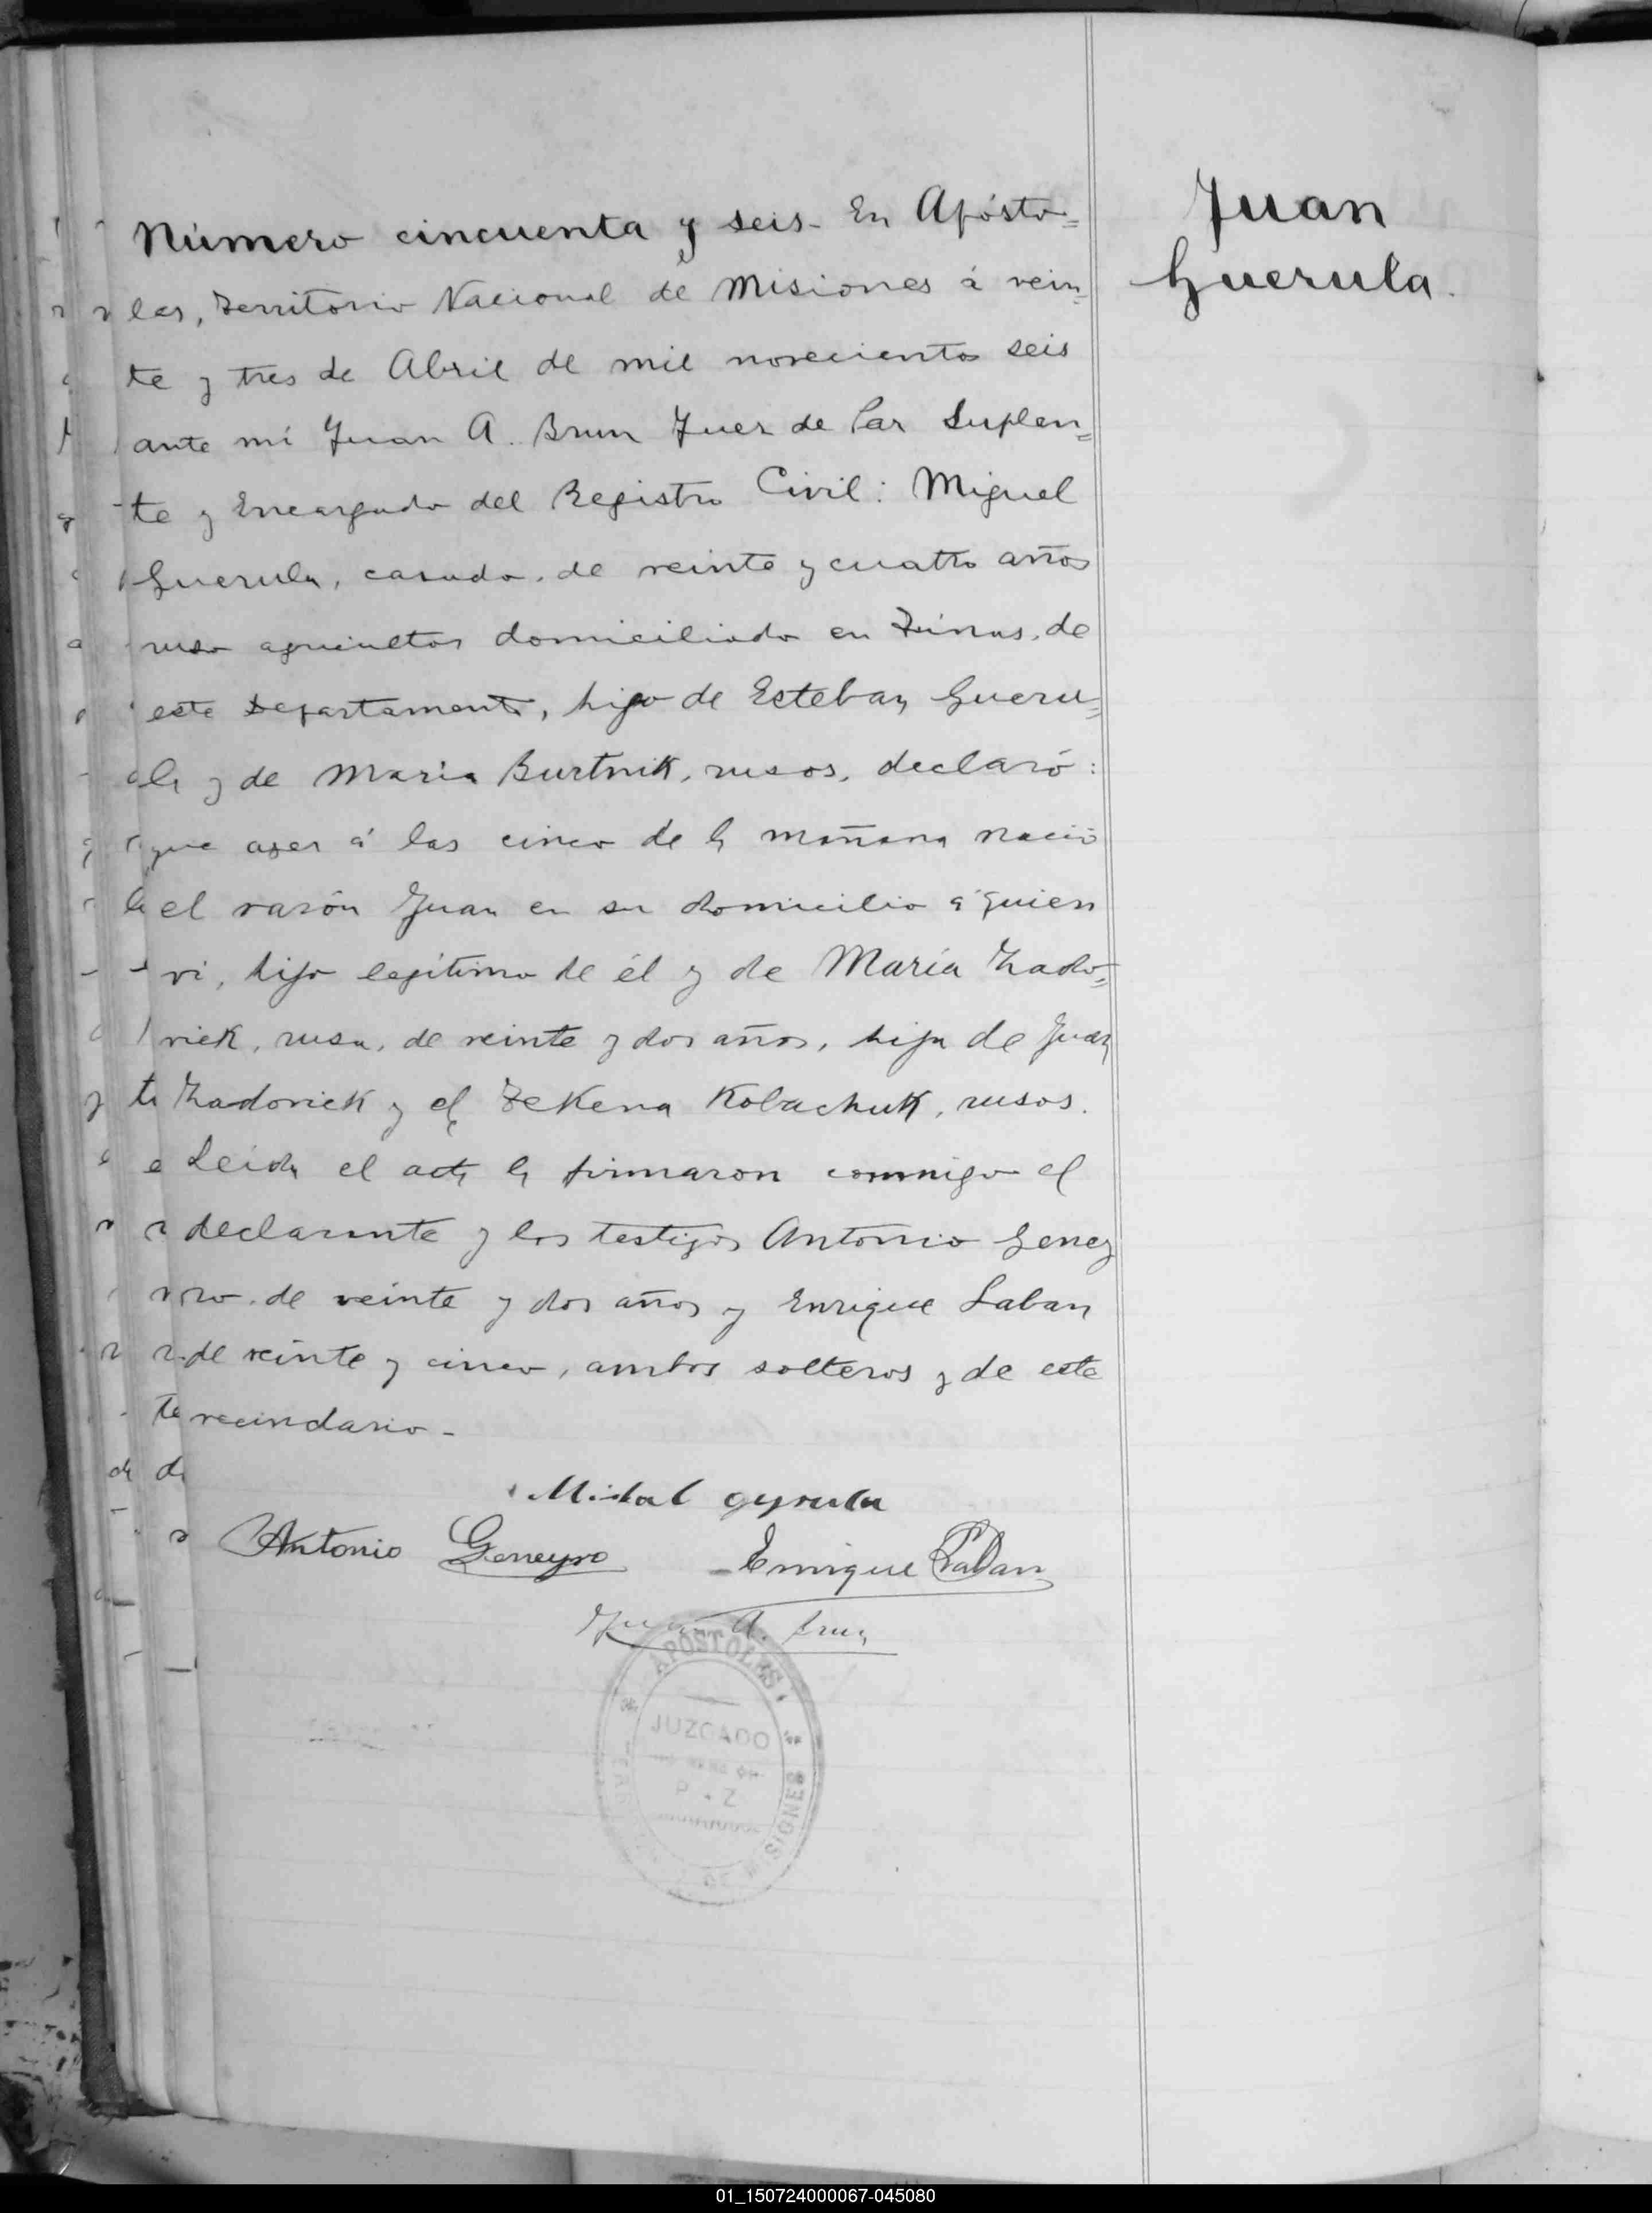 Juan
Guerula.
Número cincuenta y seis- En Apósto=
les, Territorio Nacional de Misiones á vein=
te y tres de Abril de mil novecientos seis
ante mí Juan A. Brun Juez de Paz Suplen=
te y Encargado del Registro Civil: Miguel
Guerula, casado, de veinte y cuatro años
ruso agricultor domiciliado en de
este Departamento, hijo de Esteban Gueru=
la y de Maria Burtnik, rusos, declaró:
que ayer á las cinco de la mañana nació
el varón Juan en su domicilio á quien
vi, hijo legítimo de él y de María Zado=
vick, rusa, de veinte y dos años, hija de Juan
Zadovick y de Tekena Kolachuk, rusos.
Leida el acta la firmaron conmigo el
declarante y los testigos Antonio Geney
ro de veinte y dos años y Enrique Laban
de veinte y cinco, ambos solteros y de este
vecindario-
Antonio Geneyro
Enrique Laban
Juan A. Brun
APOSTOLES
JUZGADO
DE
P Z
MISIONES
01_150724000067-045080